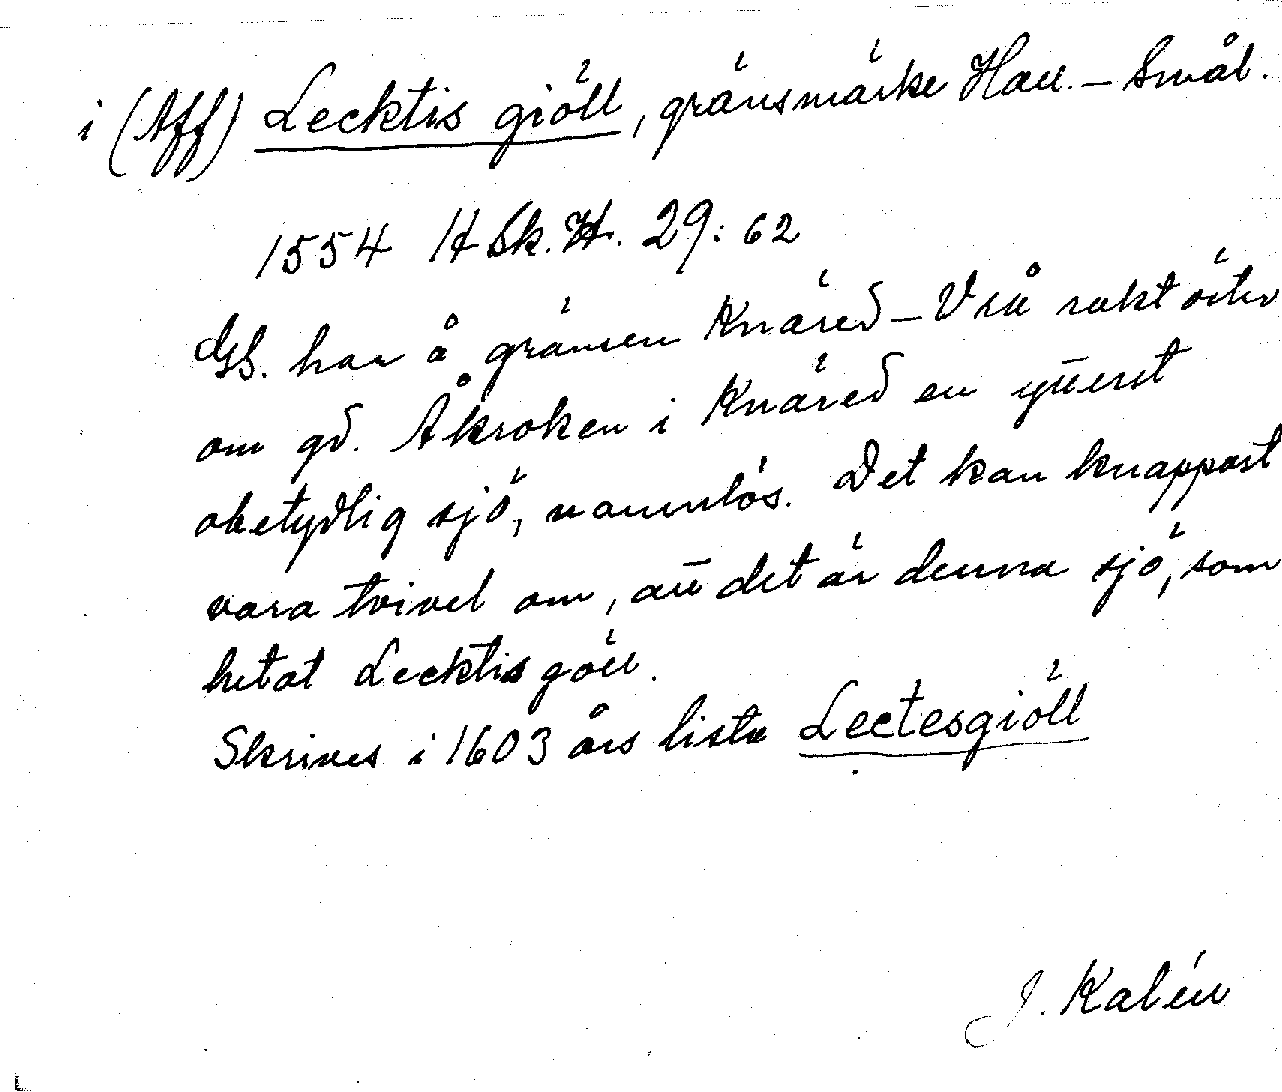 i (Aff) Lecktis giöll, gränsmärke Hall. – Smål.
1554 H Sk. H. 29: 62
GS. har å gränsen Knäred – Vrå rakt öster
om gd. Åkroken i Knäred en ytterst
obetydlig sjö, namnlös. Det kan knappast
vara tvivel om, att det är denna sjö, som
hetat Lecktis göll.
Skrives i 1603 års lista Lectesgiöll
J. Kalén